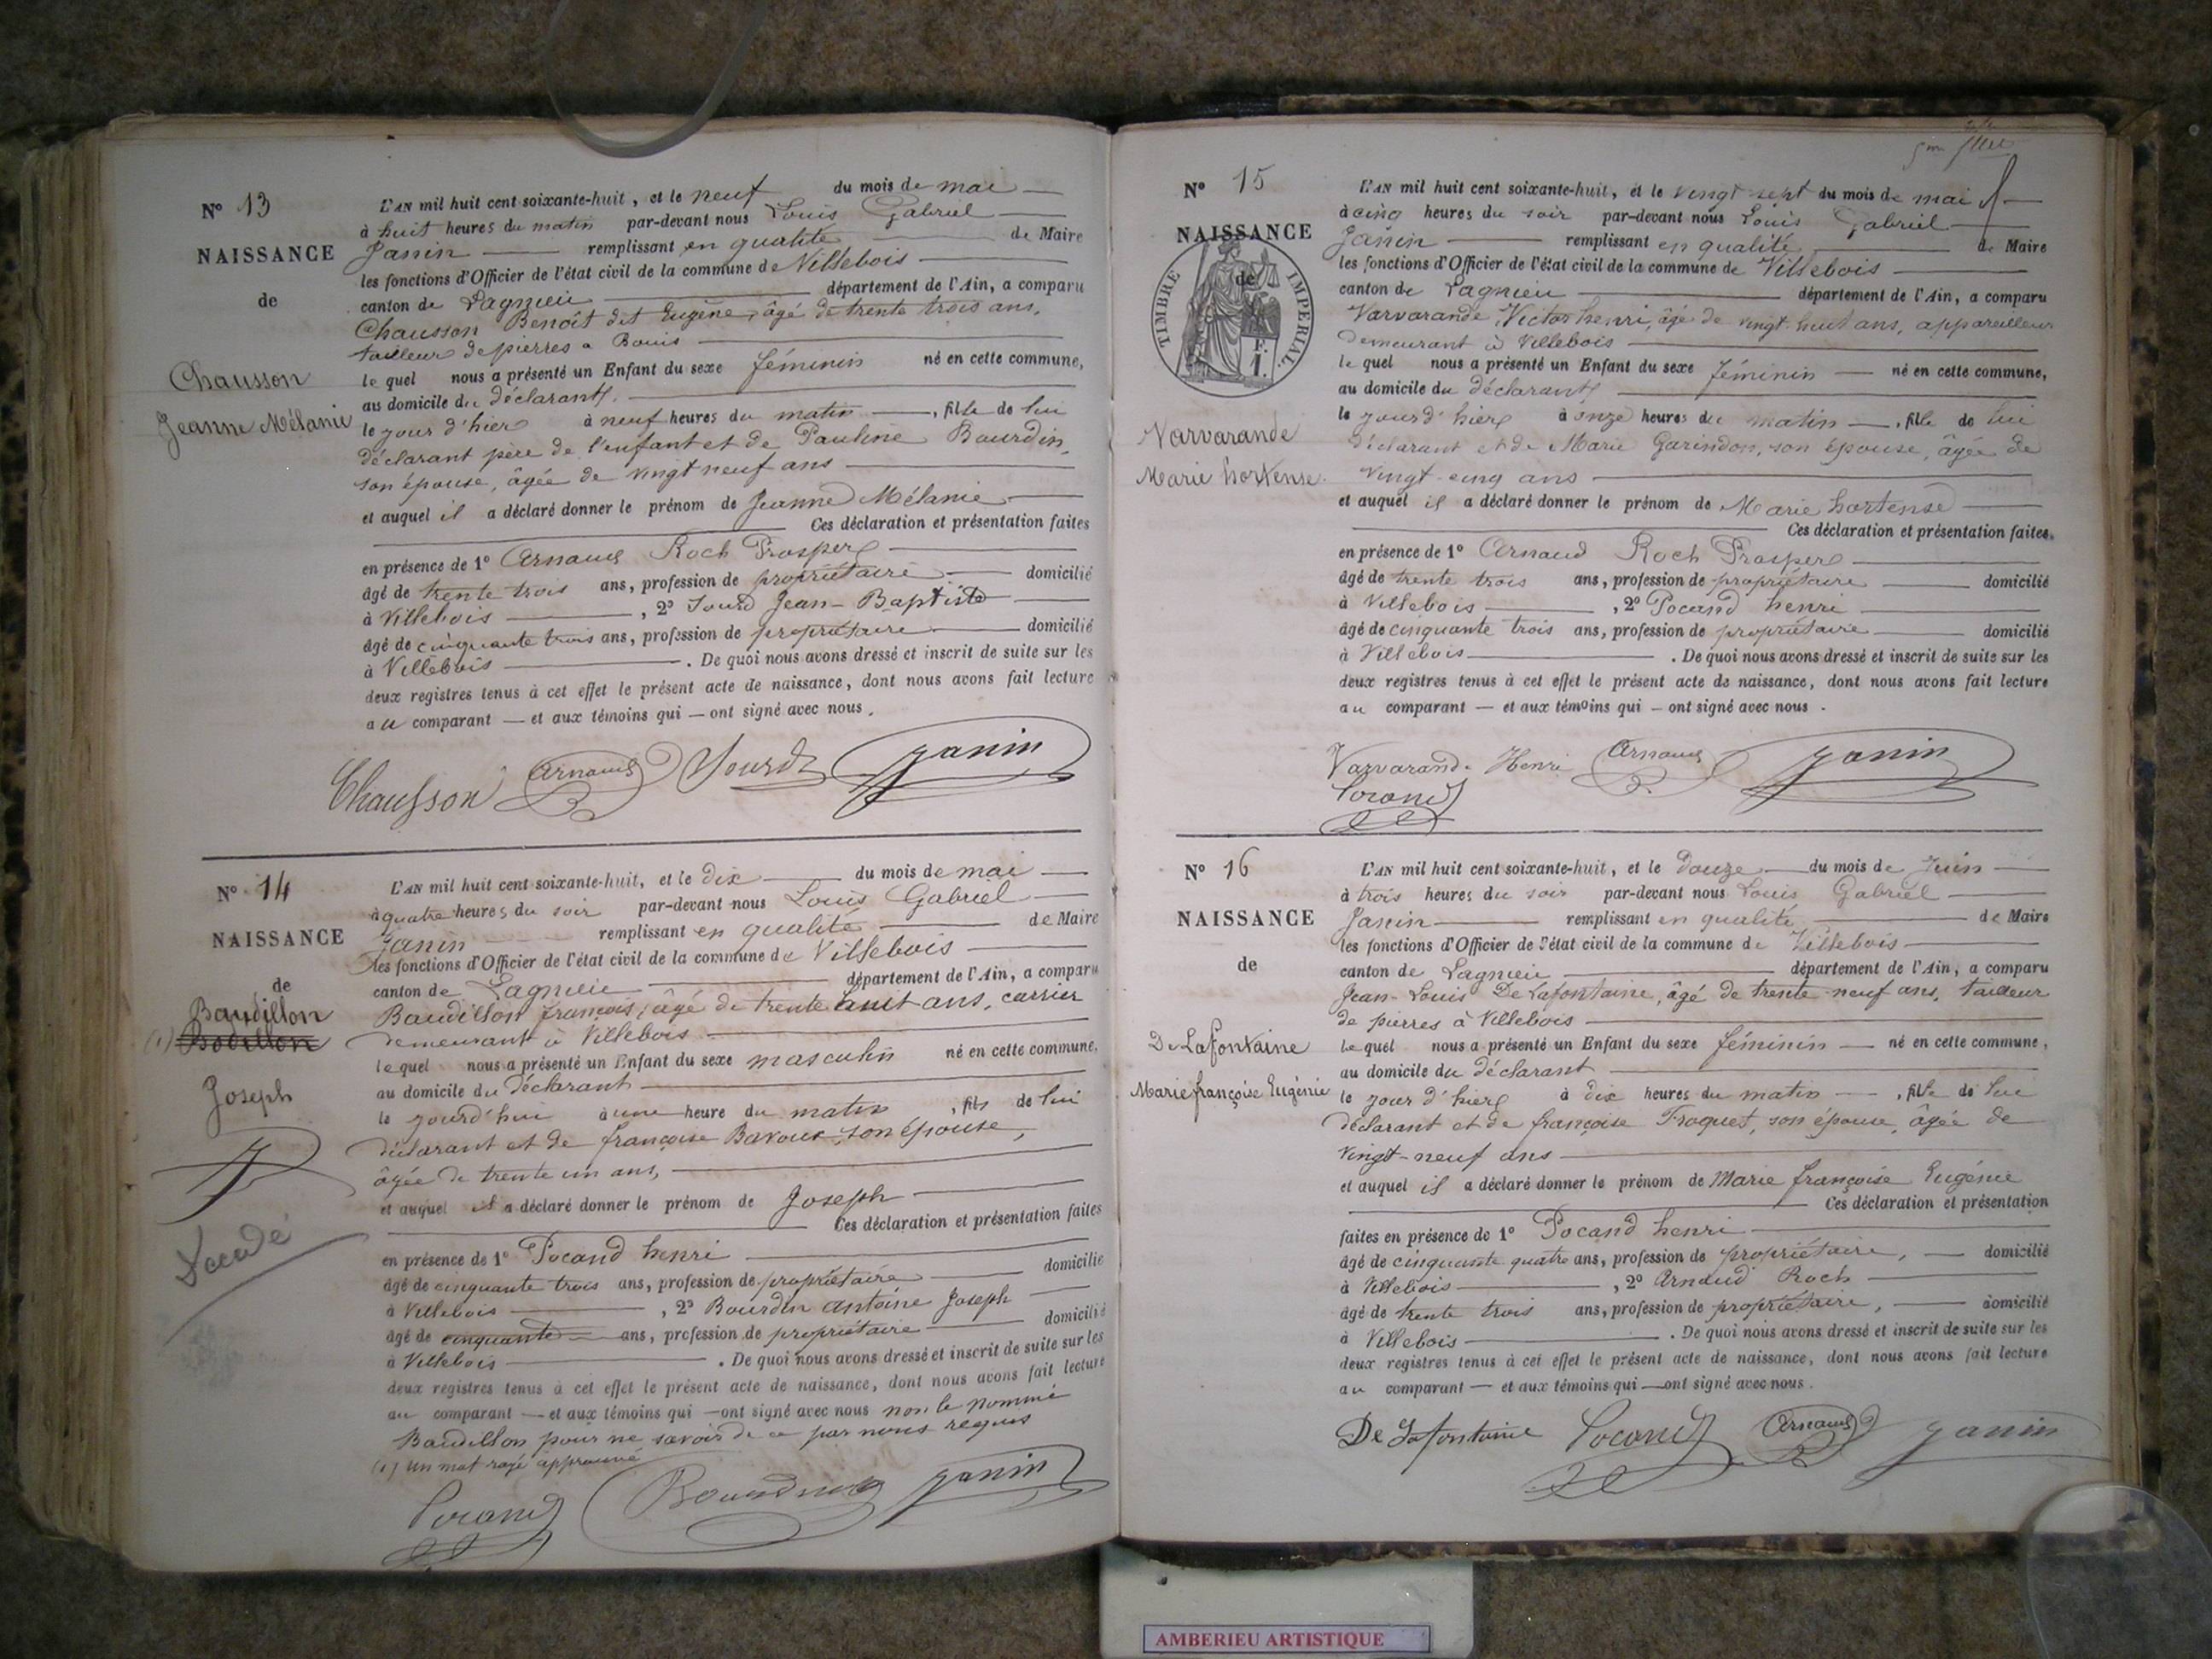 N° 13
NAISSANCE
de
Chausson
Jeanne Mélanie
L'AN mil huit cent soixante-huit, et le neuf du mois de mai
à huit heures du matin par-devant nous Louis Gabriel
Janin remplissant en qualité de Maire
les fonctions d'Officier de l'état civil de la commune de Villebois
canton de Lagnieu département de l'Ain, a comparu
Chausson Benoît dit Eugène, âgé de trente trois ans,
tailleur de pierres a Bouis
le quel nous a présenté un Enfant du sexe féminin né en cette commune,
au domicile du déclarant
le jour d'hier à neuf heures du matin, fille de lui
déclarant père de l'enfant et de Pauline Bourdin,
son épouse, âgée de vingt neuf ans
et auquel il a déclaré donner le prénom de Jeanne Mélanie
Ces déclaration et présentation faites
en présence de 1° Arnaud Roch Prosper
âgé de trente trois ans, profession de propriétaire domicilié
à Villebois, 2° Sourd Jean-Baptiste
âgé de cinquante trois ans, profession de propriétaire domicilié
à Villebois. De quoi nous avons dressé et inscrit de suite sur les
deux registres tenus à cet effet le présent acte de naissance, dont nous avons fait lecture
au comparant — et aux témoins qui — ont signé avec nous.
Chausson Arnaud Sourd Janin
N° 14
NAISSANCE
de
Baudillon
(1) Bodillon
Joseph
Décédé
L'AN mil huit cent soixante-huit, et le dix du mois de mai
à quatre heures du soir par-devant nous Louis Gabriel
Janin remplissant en qualité de Maire
les fonctions d'Officier de l'état civil de la commune de Villebois
canton de Lagnieu département de l'Ain, a comparu
Baudillon françois, âgé de trente huit ans, carrier
demeurant à Villebois
lequel nous a présenté un Enfant du sexe masculin né en cette commune,
au domicile du déclarant
le jourd'hui à une heure du matin, fils de lui
déclarant et de françoise Bavoux, son épouse,
âgée de trente un ans,
et auquel il a déclaré donner le prénom de Joseph
Ces déclaration et présentation faites
en présence de 1° Pocand henri
âgé de cinquante trois ans, profession de propriétaire domicilié
à Villebois, 2° Bourdin antoine Joseph
âgé de cinquante ans, profession de propriétaire domicilié
à Villebois. De quoi nous avons dressé et inscrit de suite sur les
deux registres tenus à cet effet le présent acte de naissance, dont nous avons fait lecture
au comparant — et aux témoins qui — ont signé avec nous non le nommé
Baudillon pour ne savoir de ce par nous requis
(1) Un mot rayé approuvé
Pocand Bourdin Janin
N° 15
NAISSANCE
de
TIMBRE IMPERIAL
F.
1.
Varvarande
Marie hortense.
L'AN mil huit cent soixante-huit, et le vingt sept du mois de mai
à cinq heures du soir par-devant nous Louis Gabriel
Janin remplissant en qualité de Maire
les fonctions d'Officier de l'état civil de la commune de Villebois
canton de Lagnieu département de l'Ain, a comparu
Varvarande Victor henri, âgé de vingt huit ans, appareilleur
demeurant à Villebois
le quel nous a présenté un Enfant du sexe féminin — né en cette commune,
au domicile du déclarant
le jour d'hier à onze heures du matin —, fille de lui
déclarant et de Marie Garindon, son épouse, âgée de
vingt-cinq ans
et auquel il a déclaré donner le prénom de Marie hortense
Ces déclaration et présentation faites.
en présence de 1° Arnaud Roch Prosper
âgé de trente trois ans, profession de propriétaire domicilié
à Villebois, 2° Pocand henri
âgé de cinquante trois ans, profession de propriétaire domicilié
à Villebois. De quoi nous avons dressé et inscrit de suite sur les
deux registres tenus à cet effet le présent acte de naissance, dont nous avons fait lecture
au comparant — et aux témoins qui — ont signé avec nous.
Varvarande Henri Arnaud Janin
Pocand
N° 16
NAISSANCE
de
De Lafontaine
Marie françoise Eugénie
L'AN mil huit cent soixante-huit, et le douze du mois de Juin
à trois heures du soir par-devant nous Louis Gabriel
Janin remplissant en qualité de Maire
les fonctions d'Officier de l'état civil de la commune de Villebois
canton de Lagnieu département de l'Ain, a comparu
Jean-Louis De Lafontaine, âgé de trente-neuf ans, tailleur
de pierres à Villebois
le quel nous a présenté un Enfant du sexe féminin — né en cette commune,
au domicile du déclarant
le jour d'hier à dix heures du matin —, fille de lui
déclarant et de françoise Troquet, son épouse, âgée de
vingt-neuf ans
et auquel il a déclaré donner le prénom de Marie françoise Eugénie
Ces déclaration et présentation
faites en présence de 1° Pocand henri
âgé de cinquante quatre ans, profession de propriétaire, domicilié
à Villebois, 2° Arnaud Roch
âgé de trente trois ans, profession de propriétaire, domicilié
à Villebois. De quoi nous avons dressé et inscrit de suite sur les
deux registres tenus à cet effet le présent acte de naissance, dont nous avons fait lecture
au comparant — et aux témoins qui — ont signé avec nous.
De Lafontaine Pocand Arnaud Janin
AMBERIEU ARTISTIQUE